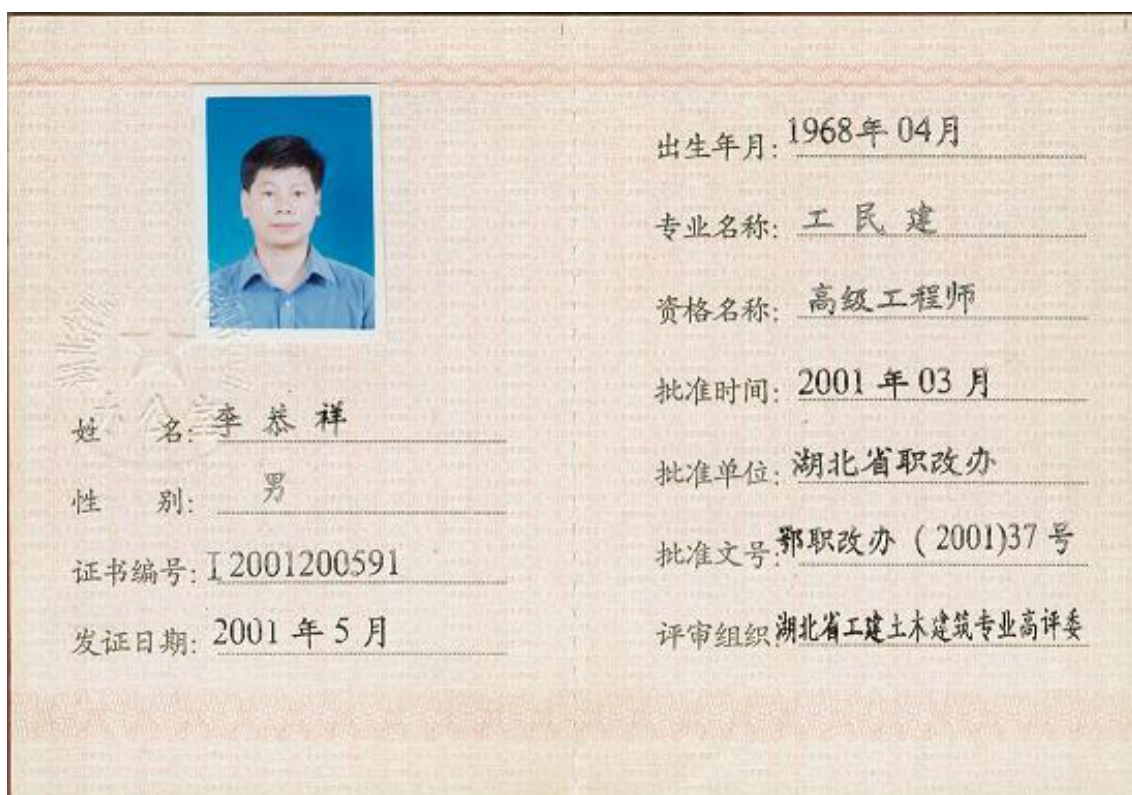 姓 名: 李恭祥
性 别: 男
证书编号: I2001200591
发证日期: 2001 年 5 月
出生年月: 1968年 04月
专业名称: 工民建
资格名称: 高级工程师
批准时间: 2001 年 03 月
批准单位: 湖北省职改办
批准文号: 鄂职改办 ( 2001)37 号
评审组织: 湖北省工建土木建筑专业高评委